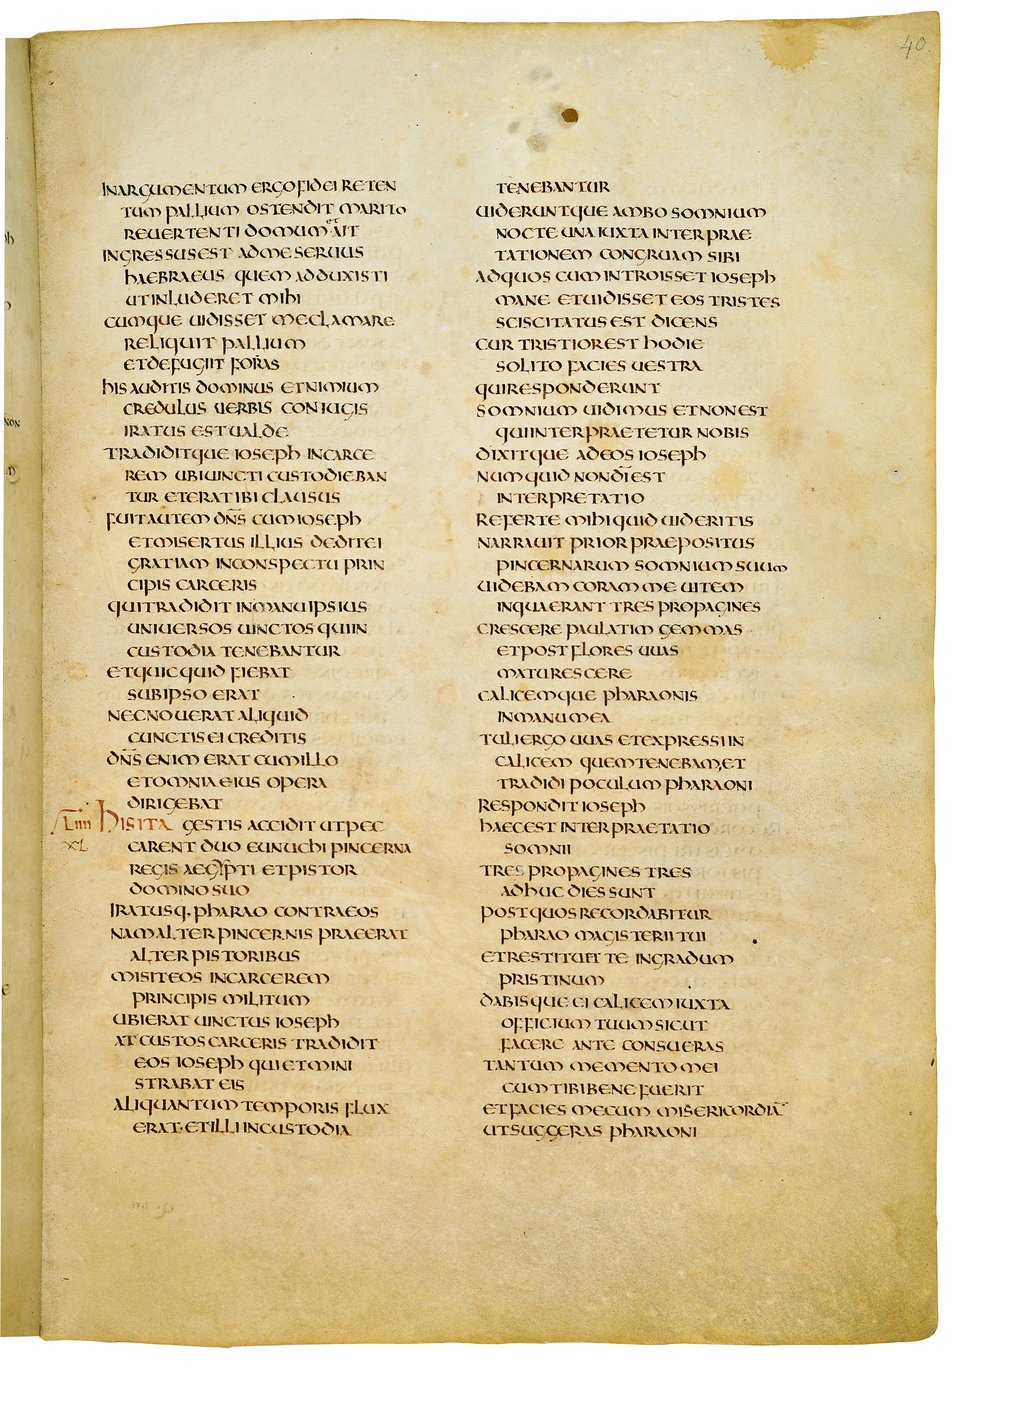 40.
INARGUMENTUM ERGO FIDEI RETEN
TUM PALLIUM OSTENDIT MARITO
REUERTENTI DOMUM ET AIT
INGRESSUS EST AD ME SERUUS
HAEBRAEUS QUEM ADDUXISTI
UT INLUDERET MIHI
CUMQUE UIDISSET ME CLAMARE
RELIQUIT PALLIUM
ET DEFUGIIT FORAS
HIS AUDITIS DOMINUS ET NIMIUM
CREDULUS UERBIS CONIUGIS
IRATUS EST UALDE
TRADIDITQUE IOSEPH IN CARCE
REM UBI UINCTI CUSTODIEBAN
TUR ET ERAT IBI CLAUSUS
FUIT AUTEM DN̅S CUM IOSEPH
ET MISERTUS ILLIUS DEDIT EI
GRATIAM IN CONSPECTU PRIN
CIPIS CARCERIS
QUI TRADIDIT IN MANU IPSIUS
UNIUERSOS UINCTOS QUI IN
CUSTODIA TENEBANTUR
ET QUICQUID FIEBAT
SUB IPSO ERAT
NEC NOUERAT ALIQUID
CUNCTIS EI CREDITIS
DN̅S ENIM ERAT CUM ILLO
ET OMNIA EIUS OPERA
DIRIGEBAT
LIIII HIS ITA GESTIS ACCIDIT UT PEC
XL CARENT DUO EUNUCHI PINCERNA
REGIS AEGYPTI ET PISTOR
DOMINO SUO
IRATUSQ· PHARAO CONTRA EOS
NAM ALTER PINCERNIS PRAEERAT
ALTER PISTORIBUS
MISIT EOS IN CARCEREM
PRINCIPIS MILITUM
UBI ERAT UINCTUS IOSEPH
AT CUSTOS CARCERIS TRADIDIT
EOS IOSEPH QUI ET MINI
STRABAT EIS
ALIQUANTUM TEMPORIS FLUX
ERAT· ET ILLI IN CUSTODIA
TENEBANTUR
UIDERUNTQUE AMBO SOMNIUM
NOCTE UNA IUXTA INTERPRAE
TATIONEM CONGRUAM SIBI
AD QUOS CUM INTROISSET IOSEPH
MANE ET UIDISSET EOS TRISTES
SCISCITATUS EST DICENS
CUR TRISTIOR EST HODIE
SOLITO FACIES UESTRA
QUI RESPONDERUNT
SOMNIUM UIDIMUS ET NON EST
QUI INTERPRAETETUR NOBIS
DIXITQUE AD EOS IOSEPH
NUMQUID NON DI̅ EST
INTERPRETATIO
REFERTE MIHI QUID UIDERITIS
NARRAUIT PRIOR PRAEPOSITUS
PINCERNARUM SOMNIUM SUUM
UIDEBAM CORAM ME UITEM
IN QUA ERANT TRES PROPAGINES
CRESCERE PAULATIM GEMMAS
ET POST FLORES UUAS
MATURESCERE
CALICEMQUE PHARAONIS
IN MANU MEA
TULI ERGO UUAS ET EXPRESSI IN
CALICEM QUEM TENEBAM, ET
TRADIDI POCULUM PHARAONI
RESPONDIT IOSEPH
HAEC EST INTERPRAETATIO
SOMNII
TRES PROPAGINES TRES
ADHUC DIES SUNT
POST QUOS RECORDABITUR
PHARAO MAGISTERII TUI
ET RESTITUET TE IN GRADUM
PRISTINUM
DABISQUE EI CALICEM IUXTA
OFFICIUM TUUM SICUT
FACERE ANTE CONSUERAS
TANTUM MEMENTO MEI
CUM TIBI BENE FUERIT
ET FACIES MECUM MISERICORDIA̅
UT SUGGERAS PHARAONI